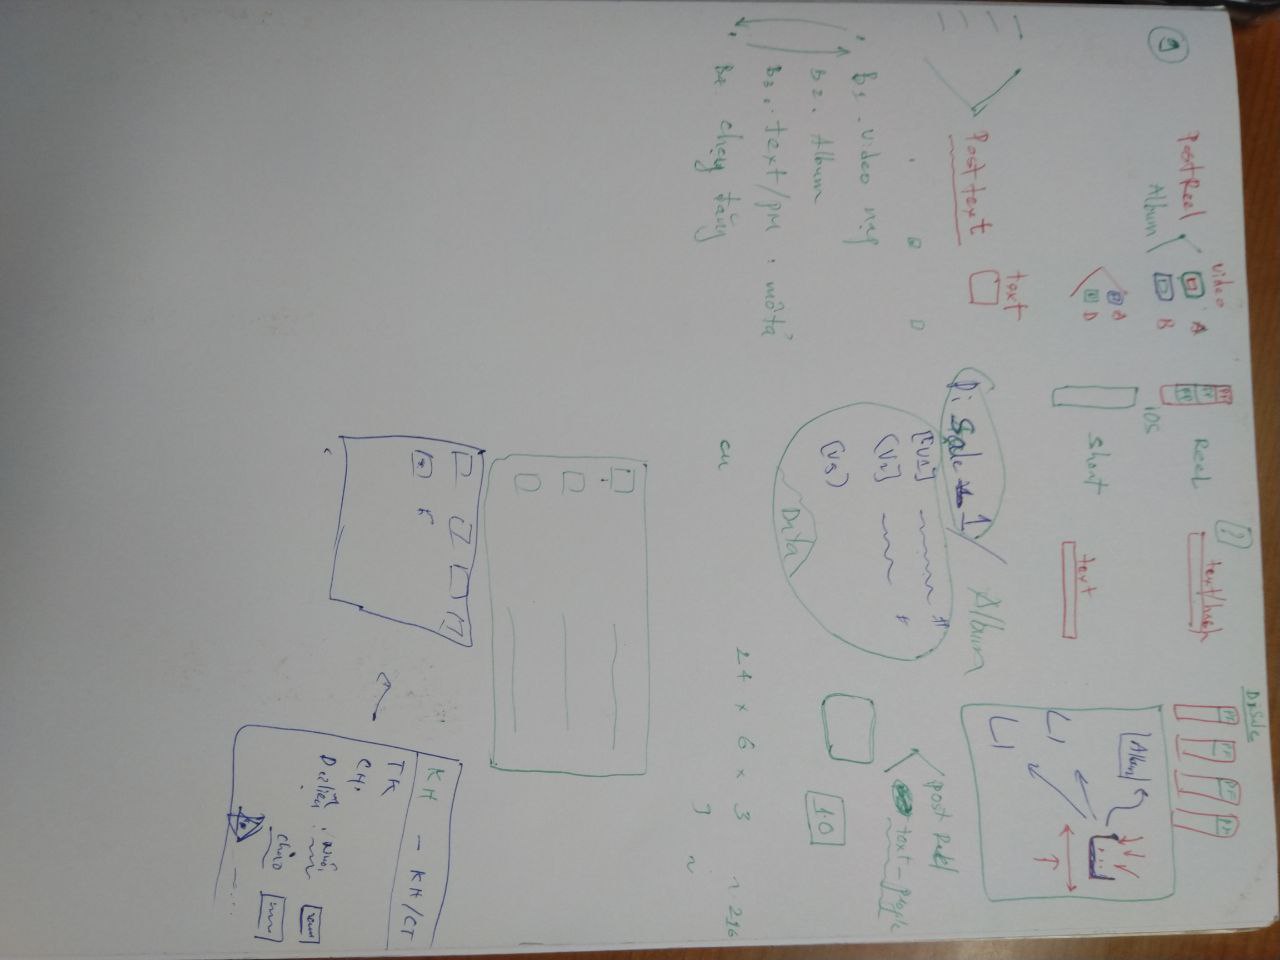 9
PostReel
Album
video
A
B
A
D
Reel
iOS
short
?
text/hash
text
DiSale
Album
Post text
text
Di Sale 1 / Album
[V1]
[V2]
(V3)
Data
post Reel
text - people
1.0
B1. video nạp
B2. Album
B3. text/pm. mô tả
B4. chạy đăng
24 x 6 x 3 ~ 216
3 ~
KH - KH/CT
TK
CH.
Dữ liệu: Nuôi
chào